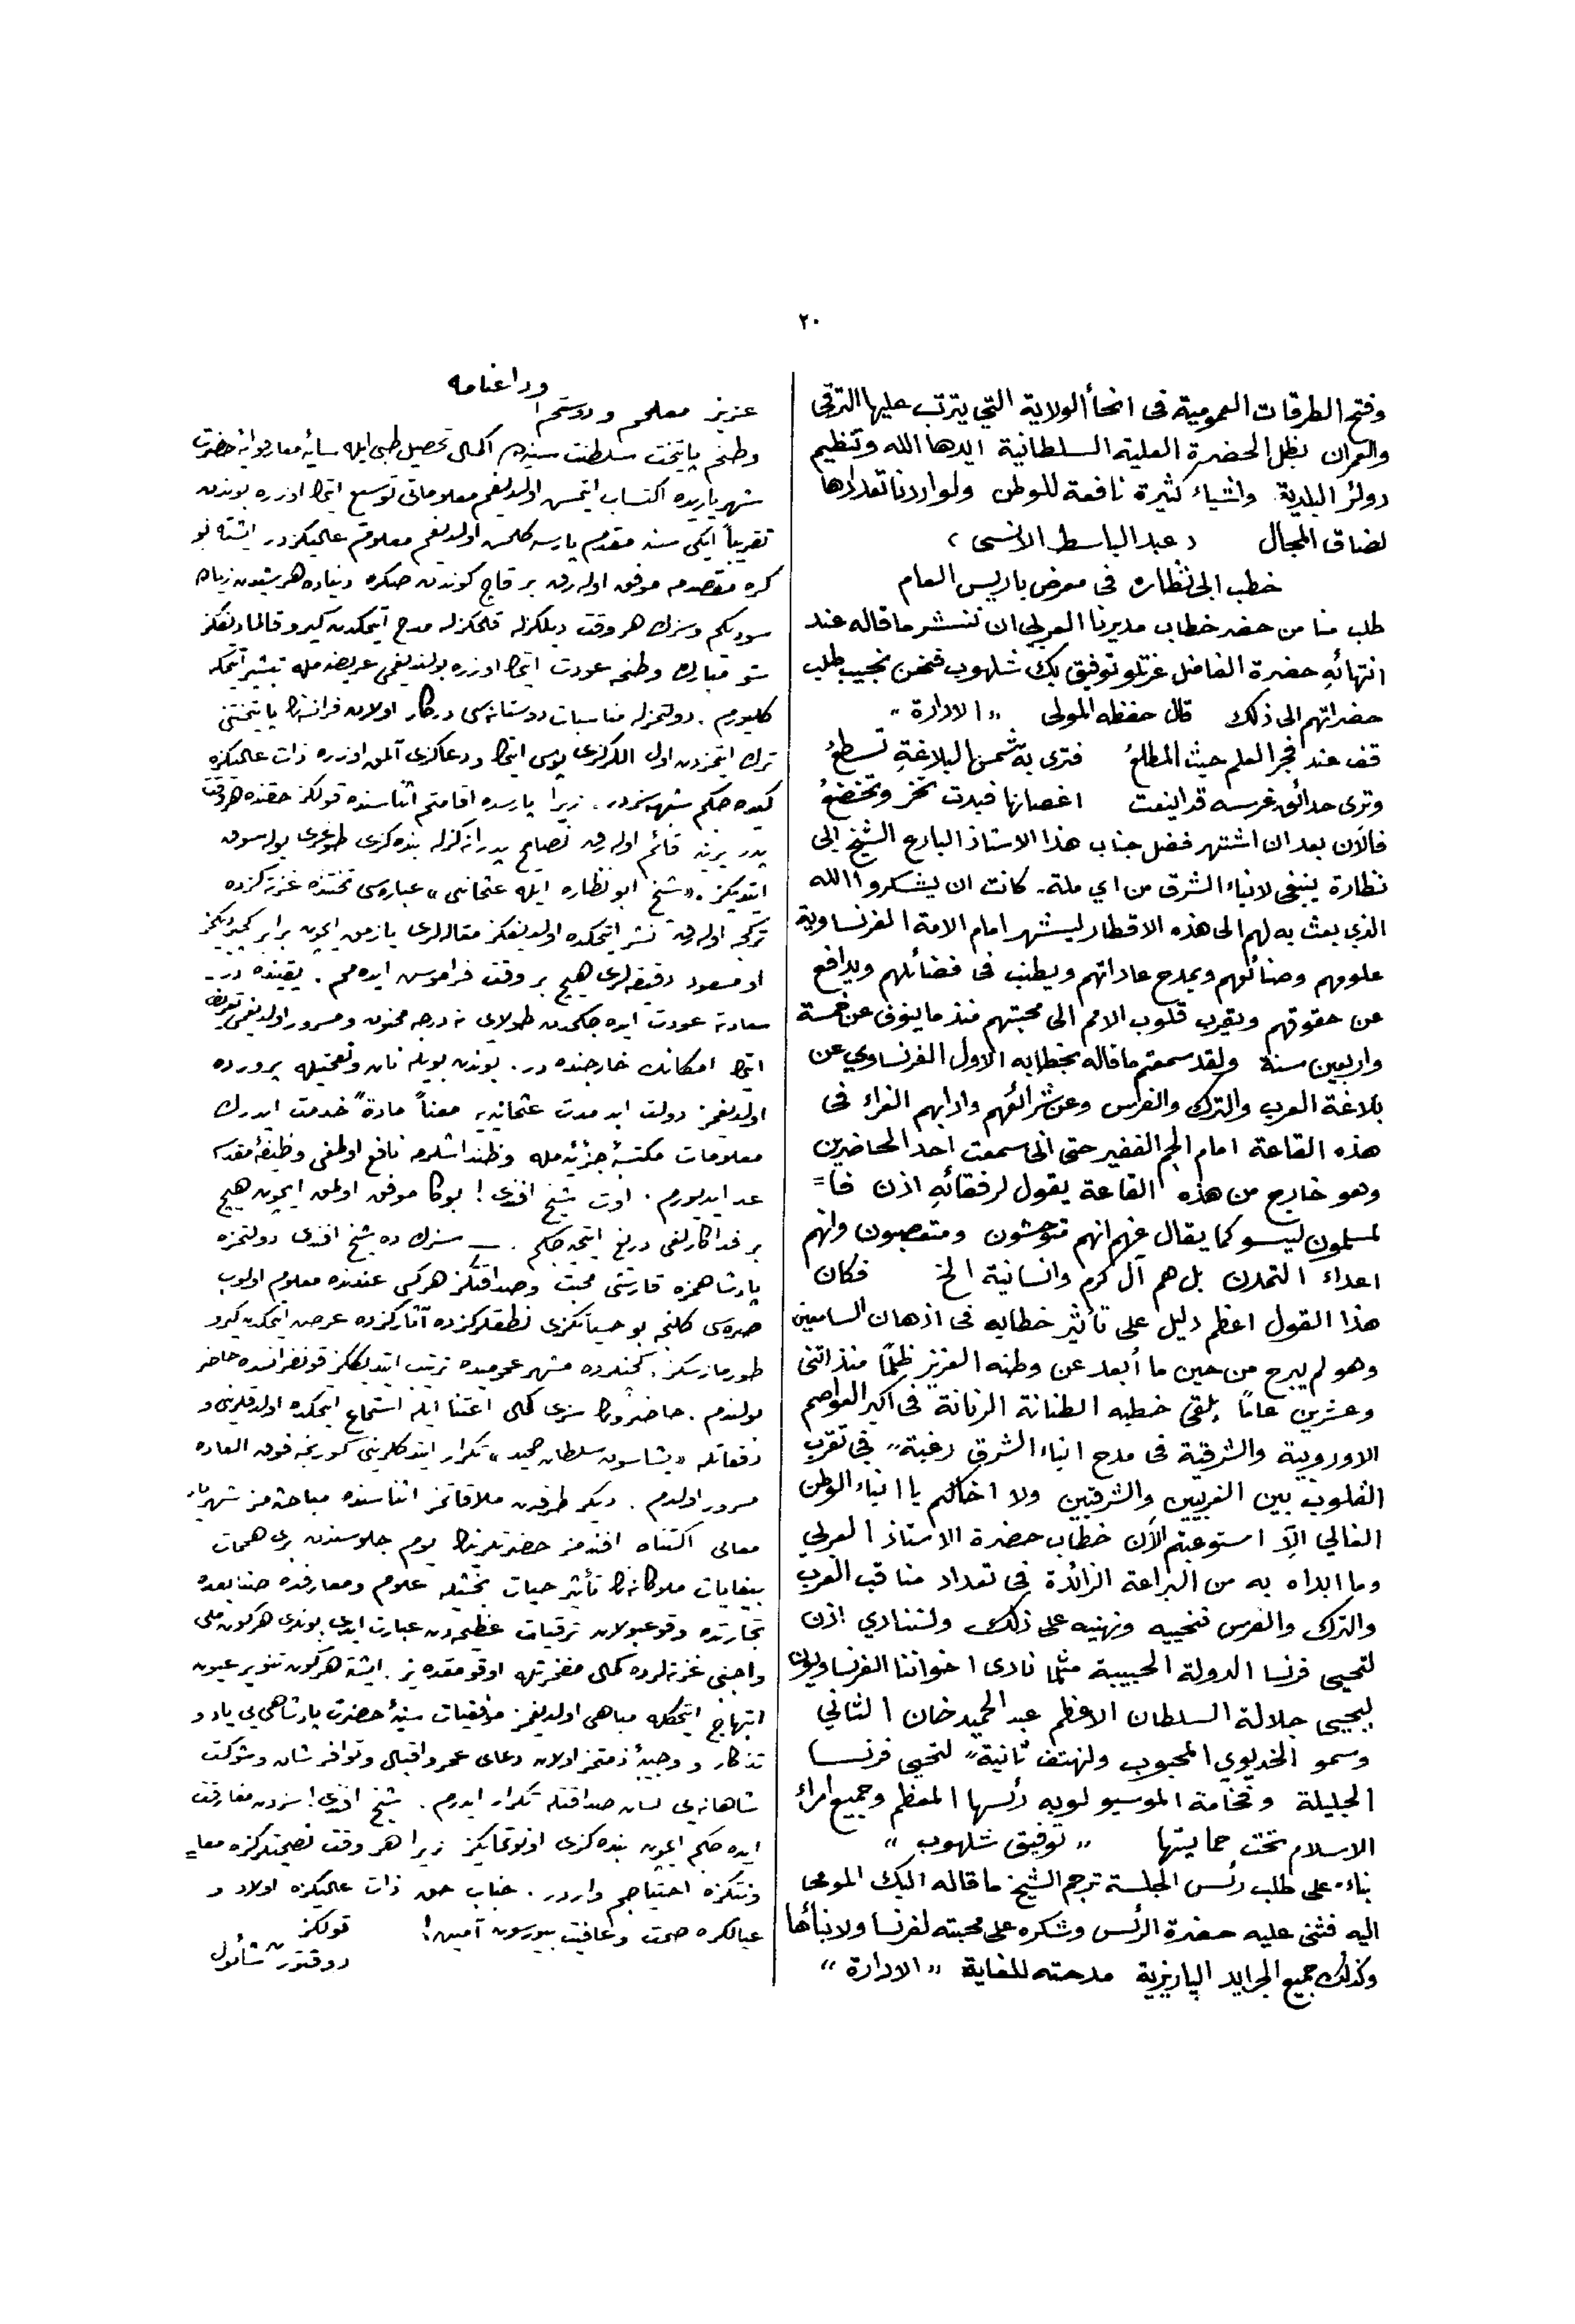 ٢٠
وفتح الطرقات العمومية فى انحأ الولاية التي يترتب عليها الترقى
والعمران بظل الحضرة العلية السلطانية ايدها الله وتنظيم
دوائر البلدية واشياء كثيرة نافعة للوطن ولو اردنا تعدادها
لضاق المجال (عبد الباسط الانسى)
خطب ابى نظاره فى معرض باريس العام
طلب منا من حضر خطاب مديرنا العربي ان ننشر ما قاله عند
انتهائهِ حضرة الفاضل عزتلو توفيق بك شلهوب فنحن نجيب طلب
حضراتهم الى ذلك قال حفظه المولى „ الادارة “
قف عند فجر العلم حيث المطلعُ فترى به شمس البلاغةِ تسطعُ
وترى حدائق غرسه قد اينعت اغصانها فبدت تخر وتخضعُ
فالآن بعد ان اشتهر فضل جناب هذا الاستاذ البارع الشيخ ابى
نظارة ينبغى لابناء الشرق من اي ملة كانت ان يشكروا الله
الذي بعث به لهم الى هذه الاقطار ليشهر امام الامة الفرنساوية
علومهم وصنائعهم ويمدح عاداتهم ويطنب فى فضائلهم ويدافع
عن حقوقهم ويقرب قلوب الامم الى محبتهم منذ ما ينوف عن خمسة
واربعين سنة ولقد سمعتم ما قاله بخطابه الاول الفرنساوي عن
بلاغة العرب والترك والفرس وعن شرائعهم وادابهم الغراء فى
هذه القاعة امام الجم الغفير حتى انى سمعت احد الحاضرين
وهو خارج من هذه القاعة يقول لرفقائهِ اذن فا=
لمسلمون ليسو كما يقال عنهم انهم متوحشون ومتعصبون وانهم
اعداء التمدن بل هم آل كرم وانسانية الخ فكان
هذا القول اعظم دليل على تأثير خطابه فى اذهان السامعين
وهو لم يبرح من حين ما أبعد عن وطنه العزيز ظلمًا منذ اثنى
وعشرين عامًا يلقى خطبه الطنانة الرنانة فى اكبر العواصم
الاوروبية والشرقية فى مدح ابناء الشرق رغبةً فى تقرب
القلوب بين الغربيين والشرقيين ولا اخالكم يا ابناء الوطن
الغالي الّا استوعبتم الآن خطاب حضرة الاستاذ العربي
وما ابداه به من البراعة الزائدة فى تعداد مناقب العرب
والترك والفرس فنحييه ونهنيه على ذلك ولننادي اذن
لتحيى فرنسا الدولة الحبيبة مثلما نادى اخواننا الفرنساويون
ليحيى جلالة السلطان الاعظم عبد الحميد خان الثاني
وسمو الخديوي المحبوب ولنهتف ثانيةً لتحيى فرنسا
الجليلة وفخامة الموسيو لوبه رئسها المعظم وجميع امراء
الاسلام تحت حمايتها „ توفيق شلهوب “
بناء على طلب رئس الجلسة ترجم الشيخ ما قاله البك المومى
اليه فثنى عليه حضرة الرئس وشكره على محبته لفرنسا ولابنأها
وكذلك جميع الجرايد الپاريزية مدحته للغاية „ الادارة “
وداعنامه
عزيز معلم و دوستم!
وطنم پايتخت سلطنت سنيه‌ده اكمال تحصيل طبى ايله سايۀ معارفوايۀ حضرت
شهرياريده اكتساب ايتمش اولديغم معلوماتى توسيع ايتمك اوزره بوندن
تقريباً ايكى سنه مقدم پارسه كلمش اولديغم معلوم عاليكزدر ايشته بو
كره مقصدمه موفق اوله‌رق بر قاچ كوندن صكره دنياده هر شيدن زياده
سوديكم وسزك هر وقت ديلكزله قلمكزله مدح ايتمكدن كيرو قالمادیغكز
شو مبارك وطنمه عودت ايتمك اوزره بولنديغمى عريضه‌مله تبشير ايتمكه
كليورم. دولتمزله مناسبات دوستانه‌سى دركار اولان فرانسه‌نك پايتختنى
ترك ايتمزدن اول اللركزى بوس ايتمك ودعاكزى آلمق اوزره ذات عاليكزه
كيده‌جكم شبهه‌سزدر. زيرا پارسده اقامتم اثناسنده قولكز حقنده هر وقت
پدر يرينه قائم اوله‌رق نصايح پدرانه‌كزله بنده‌كزى طوغرى يوله سوق
ايتديكز. «شيخ ابو نظاره ايله عثمانى» عباره‌سى تحتنده غزته‌كزده
تركجه اوله‌رق نشر ايتمكده اولديغكز مقاله‌لرى يازمق ايچون برابر كچيرديكمز
او مسعود دقيقه‌لرى هيچ بر وقت فراموش ايده‌مم.
سعادته عودت ايده‌جكمدن طولايى نه درجه ممنون ومسرور اولديغمى تعريف
ايتمك امكانك خارجنده در. بوندن بويله نان ونعمتيله پرورده
اولديغمز دولت ابد مدت عثمانيه‌يه معناً مادةً خدمت ايدرك
معلومات مكتسبۀ جزئيه‌مله وطنداشلرمه نافع اولمغى وظيفۀ مقدسه
عد ايديورم. اوت شيخ افندى! بوكا موفق اولمق ايچون هيچ
بر فداكارلغى دريغ ايتميه‌جكم. ــ سزك ده شيخ افندى دولتمزه
پادشاهمزه قارشى محبت وصداقتكز هركس عندنده معلوم اولوب
صره‌سى كلنجه بو حسياتكزى نطقلركزده آثاركزده عرض ايتمكدن كيرو
طورمازسكز. كچنلرده مشهر عموميده ترتيب ايتديككز قونفرانسده حاضر
بولندم. حاضرونك سزى كمال اعتنا ايله استماع ايتمكده اولدقلرينى و
دفعاتله «يشاسون سلطان حميد» تكرار ايتدكلرينى كورنجه فوق العاده
مسرور اولدم. ديكر طرفدن ملاقاتمز اثناسنده مباحثه‌مز شهريار
معالى اكتناه افندمز حضرتلرينك يوم جلوسندن برى همت
بيغايات ملوكانه‌لرى تأثير حيات بخشيله علوم ومعارفده صنايعده
تجارتده وقوعبولان ترقيات عظيمه‌دن عبارت ايدى بونلرى هركون ملى
واجنبى غزته‌لرده كمال مفخرتله اوقومقده‌يز. ايشته هركون تنوير عيون
ابتهاج ايتمكله مباهى اولديغمز موفقيات سنيۀ حضرت پادشاهى‌يى ياد و
تذكار و وجيبۀ ذمتمز اولان دعاى عمر واقبال وتوافر شان وشوكت
شاهانه‌يى لسان صداقتله تكرار ايدرم. شيخ افندى! سزدن مفارقت
ايده‌جكم ايچون بنده‌كزى اونوتمايكز زيرا هر وقت نصيحتلركزه معا=
ونتكزه احتياجم واردر. جناب حق ذات عاليكزه اولاد و
عيالكزه صحت وعافيت بيورسون آمين! قولكز
دوقتور شاؤل